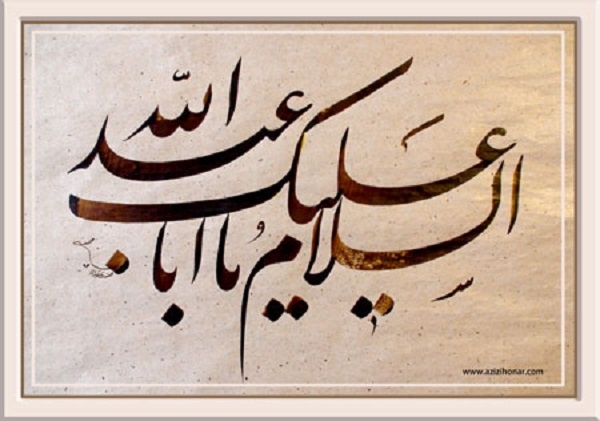 السلام علیک یا ابا
عبد الله
www.azizihonar.com